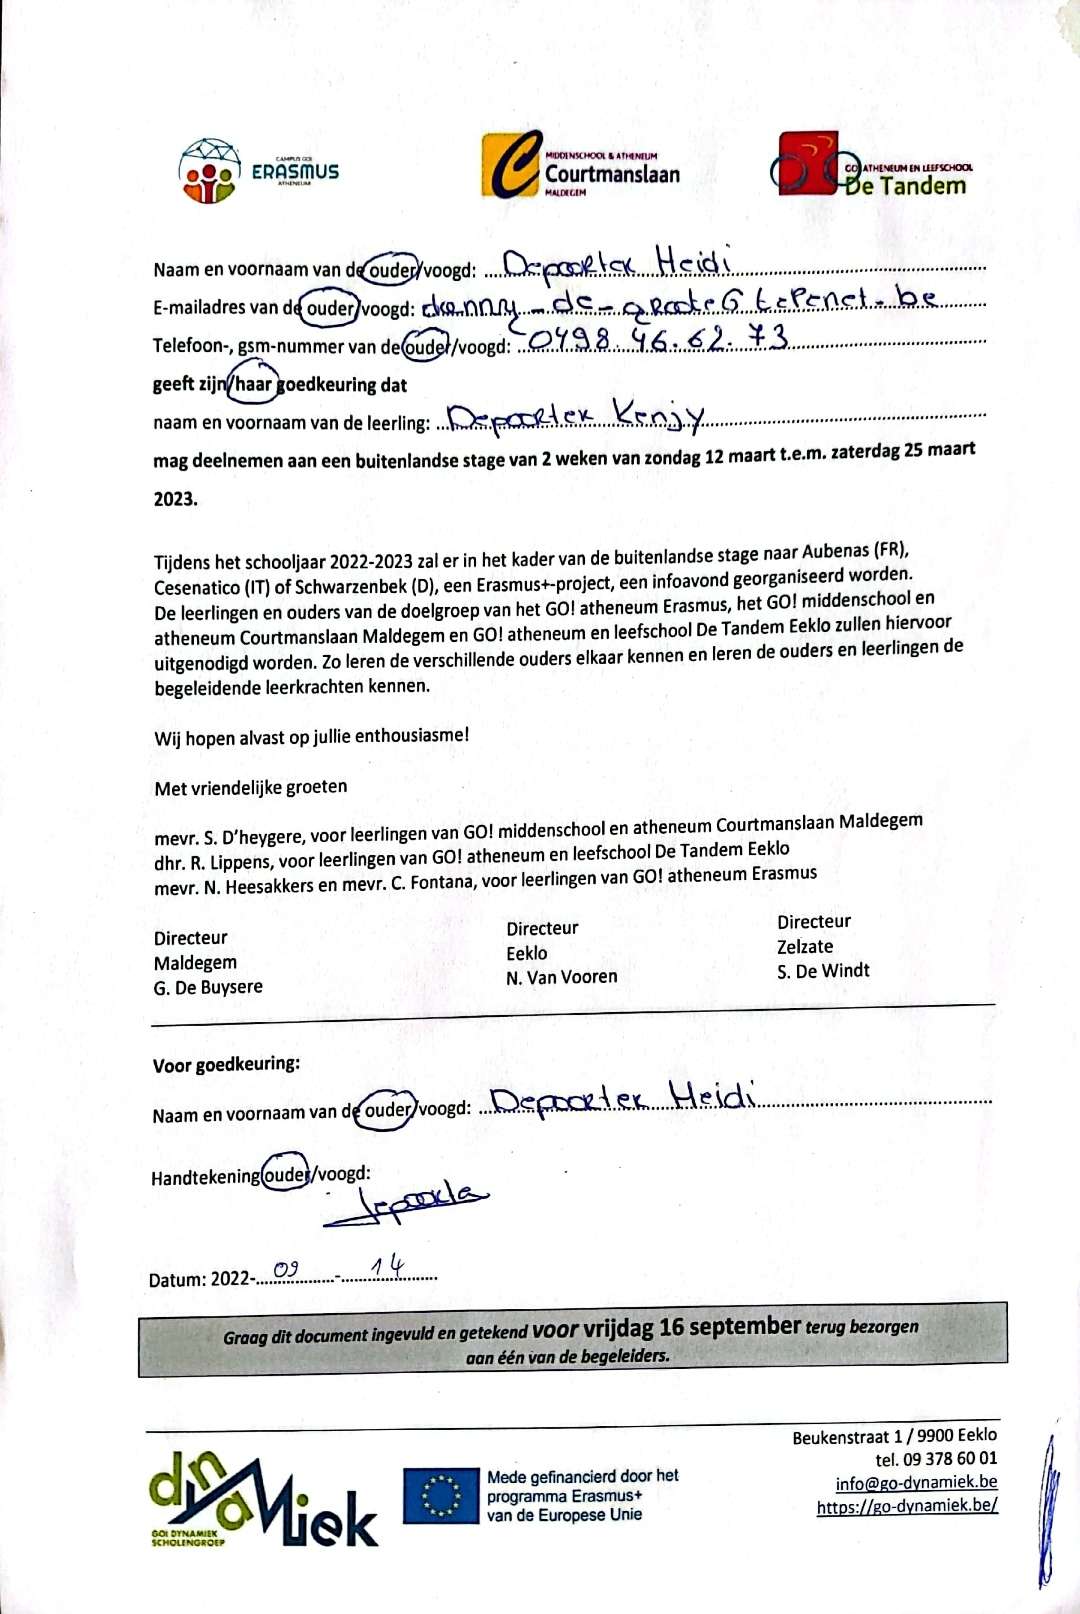 CAMPUS GO!
ERASMUS
ATHENEUM
MIDDENSCHOOL & ATHENEUM
Courtmanslaan
MALDEGEM
GO! ATHENEUM EN LEEFSCHOOL
De Tandem
Naam en voornaam van de ouder/voogd: Depoorter Heidi
E-mailadres van de ouder/voogd: danny-de-groote@telenet.be
Telefoon-, gsm-nummer van de ouder/voogd: 0498.46.62.73
geeft zijn/haar goedkeuring dat
naam en voornaam van de leerling: Depoorter Kenjy
mag deelnemen aan een buitenlandse stage van 2 weken van zondag 12 maart t.e.m. zaterdag 25 maart
2023.
Tijdens het schooljaar 2022-2023 zal er in het kader van de buitenlandse stage naar Aubenas (FR),
Cesenatico (IT) of Schwarzenbek (D), een Erasmus+-project, een infoavond georganiseerd worden.
De leerlingen en ouders van de doelgroep van het GO! atheneum Erasmus, het GO! middenschool en
atheneum Courtmanslaan Maldegem en GO! atheneum en leefschool De Tandem Eeklo zullen hiervoor
uitgenodigd worden. Zo leren de verschillende ouders elkaar kennen en leren de ouders en leerlingen de
begeleidende leerkrachten kennen.
Wij hopen alvast op jullie enthousiasme!
Met vriendelijke groeten
mevr. S. D'heygere, voor leerlingen van GO! middenschool en atheneum Courtmanslaan Maldegem
dhr. R. Lippens, voor leerlingen van GO! atheneum en leefschool De Tandem Eeklo
mevr. N. Heesakkers en mevr. C. Fontana, voor leerlingen van GO! atheneum Erasmus
Directeur
Maldegem
G. De Buysere
Directeur
Eeklo
N. Van Vooren
Directeur
Zelzate
S. De Windt
Voor goedkeuring:
Naam en voornaam van de ouder/voogd: Depoorter Heidi
Handtekening ouder/voogd:
Datum: 2022-09-14
Graag dit document ingevuld en getekend voor vrijdag 16 september terug bezorgen
aan één van de begeleiders.
dynamiek
GO! DYNAMIEK
SCHOLENGROEP
Mede gefinancierd door het
programma Erasmus+
van de Europese Unie
Beukenstraat 1 / 9900 Eeklo
tel. 09 378 60 01
info@go-dynamiek.be
https://go-dynamiek.be/